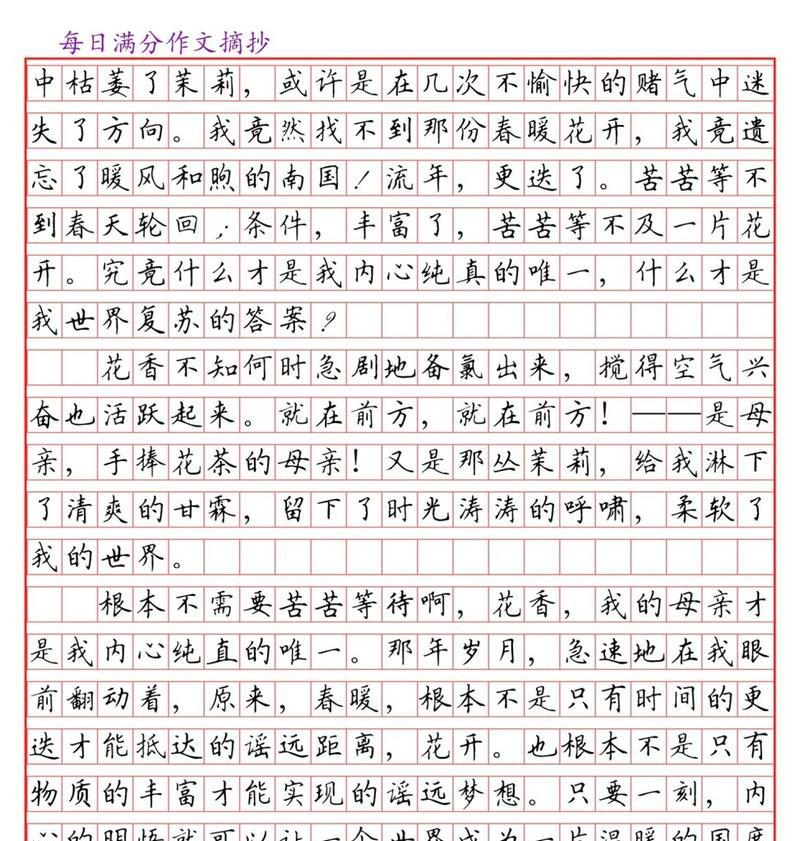 每日满分作文摘抄
中枯萎了茉莉，或许是在几次不愉快的赌气中迷
失了方向。我竟然找不到那份春暖花开，我竟遗
忘了暖风和煦的南国！流年，更迭了。苦苦等不
到春天轮回；条件，丰富了，苦苦等不及一片花
开。究竟什么才是我内心纯真的唯一，什么才是
我世界复苏的答案？
花香不知何时急剧地备氤出来，搅得空气兴
奋也活跃起来。就在前方，就在前方！——是母
亲，手捧花茶的母亲！又是那丛茉莉，给我淋下
了清爽的甘霖，留下了时光涛涛的呼啸，柔软了
我的世界。
根本不需要苦苦等待啊，花香，我的母亲才
是我内心纯直的唯一。那年岁月，急速地在我眼
前翻动着，原来，春暖，根本不是只有时间的更
迭才能抵达的谣远距离，花开。也根本不是只有
物质的丰富才能实现的谣远梦想。只要一刻，内
心的明悟就可以让一个世界成为一片温暖的国度